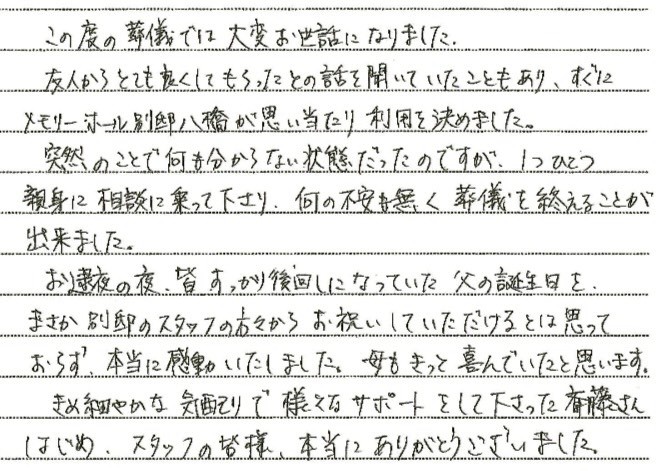 この度の葬儀では大変お世話になりました.
友人からとても良くしてもらったとの話を聞いていたこともあり、すぐに
メモリーホール別邸八橋が思い当たり利用を決めました。
突然のことで何も分からない状態だったのですが、1つひとつ
親身に相談に乗って下さり、何の不安も無く葬儀を終えることが
出来ました。
お逮夜の夜、皆すっかり後回しになっていた父の誕生日を、
まさか別邸のスタッフの方々からお祝いしていただけるとは思って
おらず、本当に感動いたしました。母もきっと喜んでいたと思います。
きめ細やかな気配りで様々なサポートをして下さった斎藤さん
はじめ、スタッフの皆様、本当にありがとうございました。